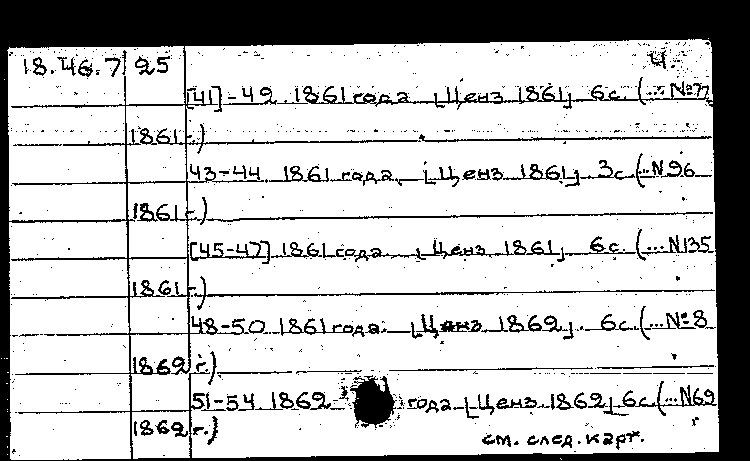 18.46.7 25 4.
[41]-42. 1861 года [Ценз 1861] 6 с. (... №77
1861 г.)
43-44. 1861 года. [Ценз 1861] 3 с. (...N 96
1861 г.)
[45-47] 1861 года. [Ценз. 1861] 6 с. (...N135
1861 г.)
48-50 1861 года. [Ценз 1862]. 6 с. (...№8
1862 г.)
51-54. 1862 года [Ценз. 1862] 6 с. (...N69
1862 г.)
см. след. карт.